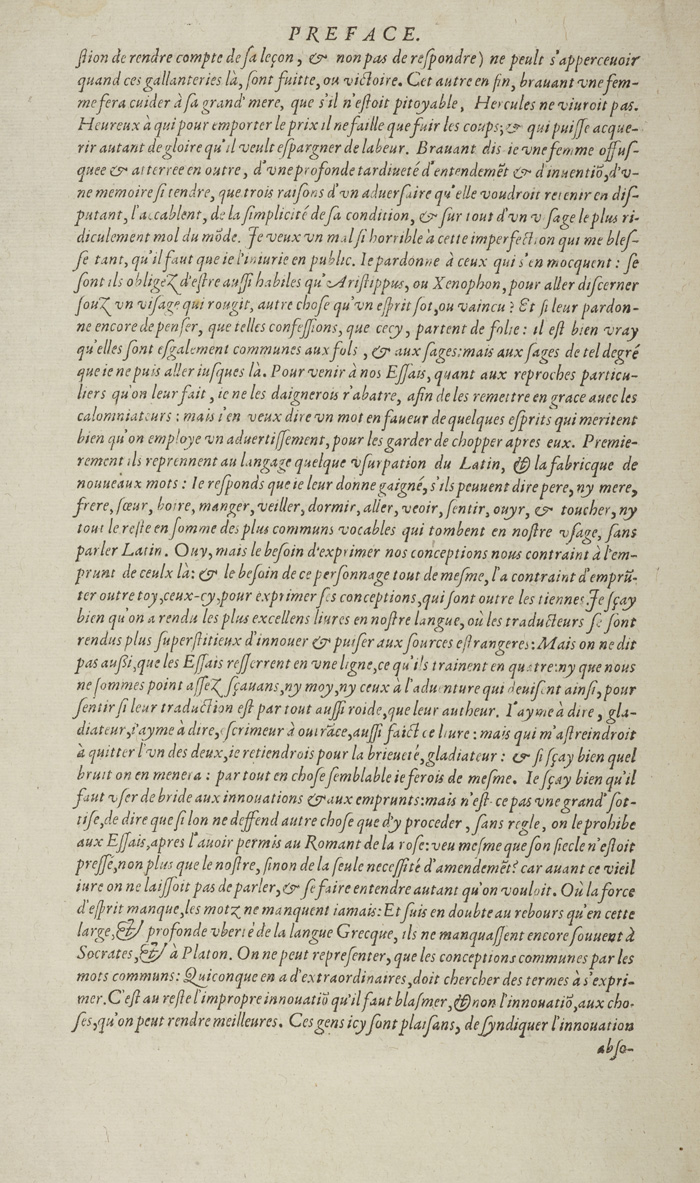 PREFACE.
ſtion de rendre compte de ſa leçon, & non pas de reſpondre) ne peult s'apperceuoir
quand ces gallanteries là, ſont fuitte, ou victoire. Cet autre en fin, brauant vne fem-
me fera cuider à ſa grand' mere, que s'il n'eſtoit pitoyable, Hercules ne viuroit pas.
Heureux à qui pour emporter le prix il ne faille que fuir les coups; & qui puiſſe acque-
rir autant de gloire qu'il veult eſpargner de labeur. Brauant dis-ie vne femme offuſ-
quee & atterree en outre, d'vne profonde tardiueté d'entendemẽt & d'inuentiõ, d'v-
ne memoire ſi tendre, que trois raiſons d'vn aduerſaire qu'elle voudroit retenir en diſ-
putant, l'accablent, de la ſimplicité de ſa condition, & ſur tout d'vn viſage le plus ri-
diculement mol du mõde. Je veux vn mal ſi horrible à cette imperfection qui me bleſ-
ſe tant, qu'il faut que ie l'iniurie en public. Ie pardonne à ceux qui s'en mocquent: ſe
ſont ils obligeZ d'eſtre auſſi habiles qu'Ariſtippus, ou Xenophon, pour aller diſcerner
ſouZ vn viſage qui rougit, autre choſe qu'vn eſprit ſot, ou vaincu? Et ſi leur pardon-
ne encore de penſer, que telles confeſſions, que cecy, partent de folie: il eſt bien vray
qu'elles ſont eſgalement communes aux fols, & aux ſages: mais aux ſages de tel degré
que ie ne puis aller iuſques là. Pour venir à nos Eſſais, quant aux reproches particu-
liers qu'on leur fait, ie ne les daignerois r'abatre, afin de les remettre en grace auec les
calomniateurs: mais i'en veux dire vn mot en faueur de quelques eſprits qui meritent
bien qu'on employe vn aduertiſſement, pour les garder de chopper apres eux. Premie-
rement ils reprennent au langage quelque vſurpation du Latin, & la fabricque de
nouueaux mots: Ie reſponds que ie leur donne gaigné, s'ils peuuent dire pere, ny mere,
frere, ſœur, boire, manger, veiller, dormir, aller, veoir, ſentir, ouyr, & toucher, ny
tout le reſte en ſomme des plus communs vocables qui tombent en noſtre vſage, ſans
parler Latin. Ouy, mais le beſoin d'exprimer nos conceptions nous contraint à l'em-
prunt de ceulx là: & le beſoin de ce perſonnage tout de meſme, l'a contraint d'emprũ-
ter outre toy, ceux-cy, pour exprimer ſes conceptions, qui ſont outre les tiennes. Je ſçay
bien qu'on a rendu les plus excellens liures en noſtre langue, où les traducteurs ſe ſont
rendus plus ſuperſtitieux d'innouer & puiſer aux ſources eſtrangeres: Mais on ne dit
pas auſsi, que les Eſſais reſſerrent en vne ligne, ce qu'ils trainent en quatre: ny que nous
ne ſommes point aſſeZ ſçauans, ny moy, ny ceux à l'aduenture qui deuiſent ainſi, pour
ſentir ſi leur traduction eſt par tout auſſi roide, que leur autheur. I'ayme à dire, gla-
diateur, i'ayme à dire, eſcrimeur à outrãce, auſſi faict ce liure: mais qui m'aſtreindroit
à quitter l'vn des deux, ie retiendrois pour la brieueté, gladiateur: & ſi ſçay bien quel
bruit on en menera: par tout en choſe ſemblable ie ferois de meſme. Ie ſçay bien qu'il
faut vſer de bride aux innouations & aux emprunts: mais n'eſt-ce pas vne grand' ſot-
tiſe, de dire que ſi lon ne deffend autre choſe que d'y proceder, ſans regle, on le prohibe
aux Eſſais, apres l'auoir permis au Romant de la roſe: veu meſme que ſon ſiecle n'eſtoit
preſſé, non plus que le noſtre, ſinon de la ſeule neceſſité d'amendemẽt? car auant ce vieil
iure on ne laiſſoit pas de parler, & ſe faire entendre autant qu'on vouloit. Où la force
d'eſprit manque, les motz ne manquent iamais: Et ſuis en doubte au rebours qu'en cette
large, & profonde vberté de la langue Grecque, ils ne manquaſſent encore ſouuent à
Socrates, & à Platon. On ne peut repreſenter, que les conceptions communes par les
mots communs: Quiconque en a d'extraordinaires, doit chercher des termes à s'expri-
mer. C'eſt au reſte l'impropre innouatiõ qu'il faut blaſmer, & non l'innouatiõ, aux cho-
ſes, qu'on peut rendre meilleures. Ces gens icy ſont plaiſans, de ſyndiquer l'innouation
abſo-